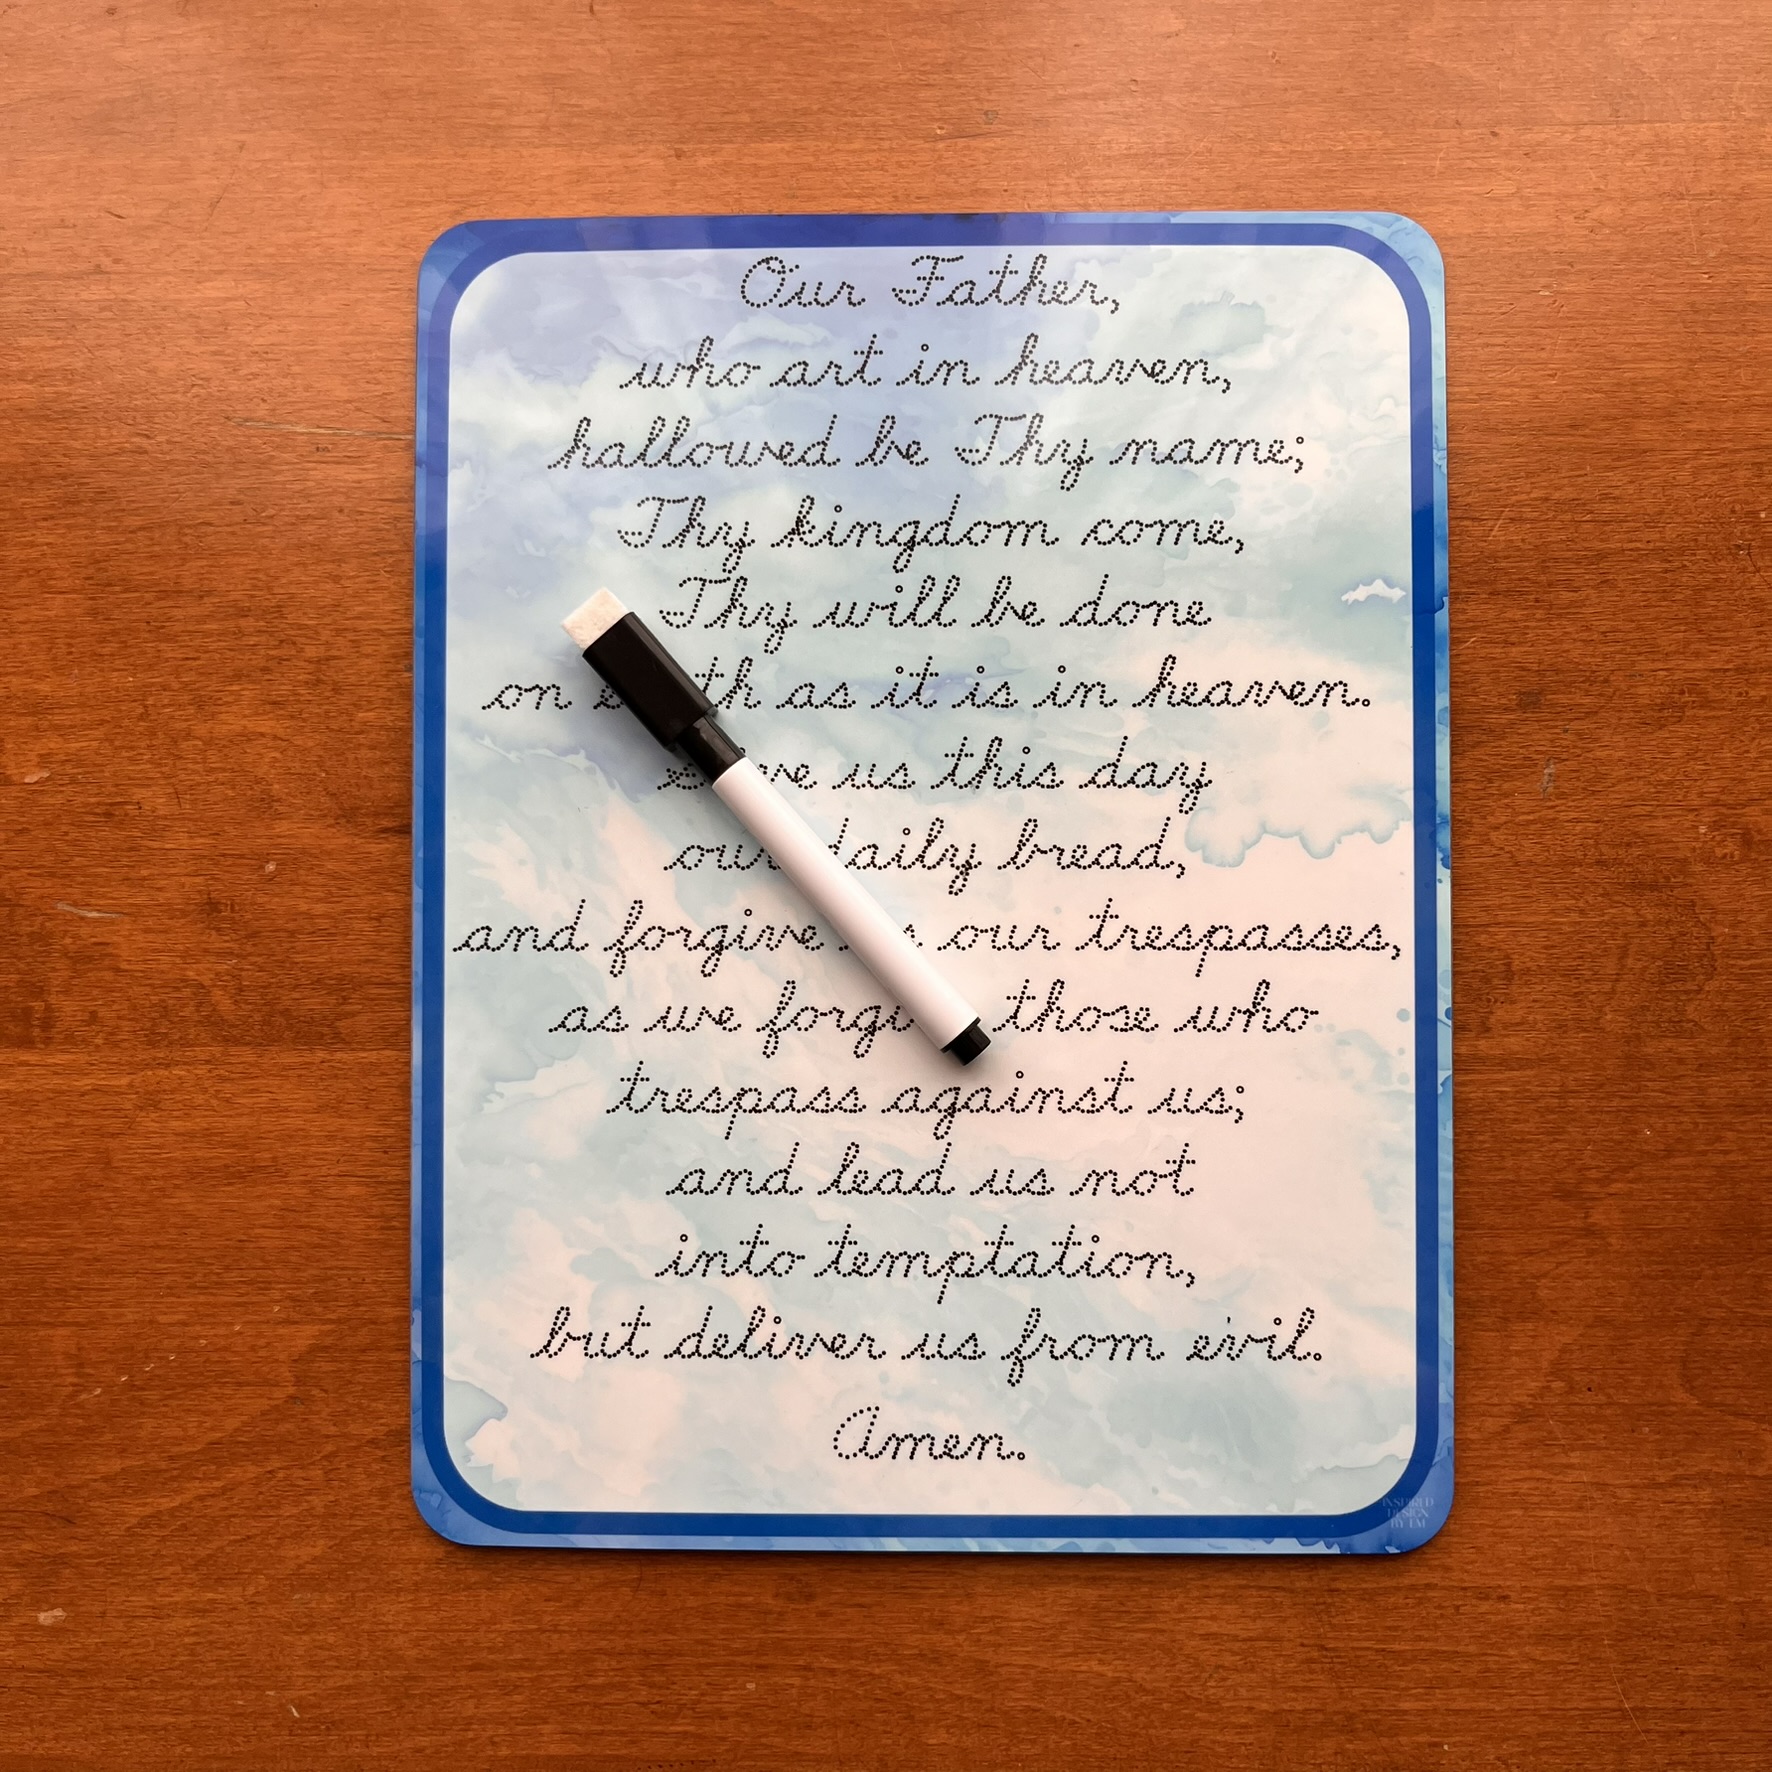 Our Father,
who art in heaven,
hallowed be Thy name;
Thy kingdom come,
Thy will be done
on earth as it is in heaven.
Give us this day
our daily bread,
and forgive us our trespasses,
as we forgive those who
trespass against us;
and lead us not
into temptation,
but deliver us from evil.
Amen.
INSPIRED
DESIGN
BY LM